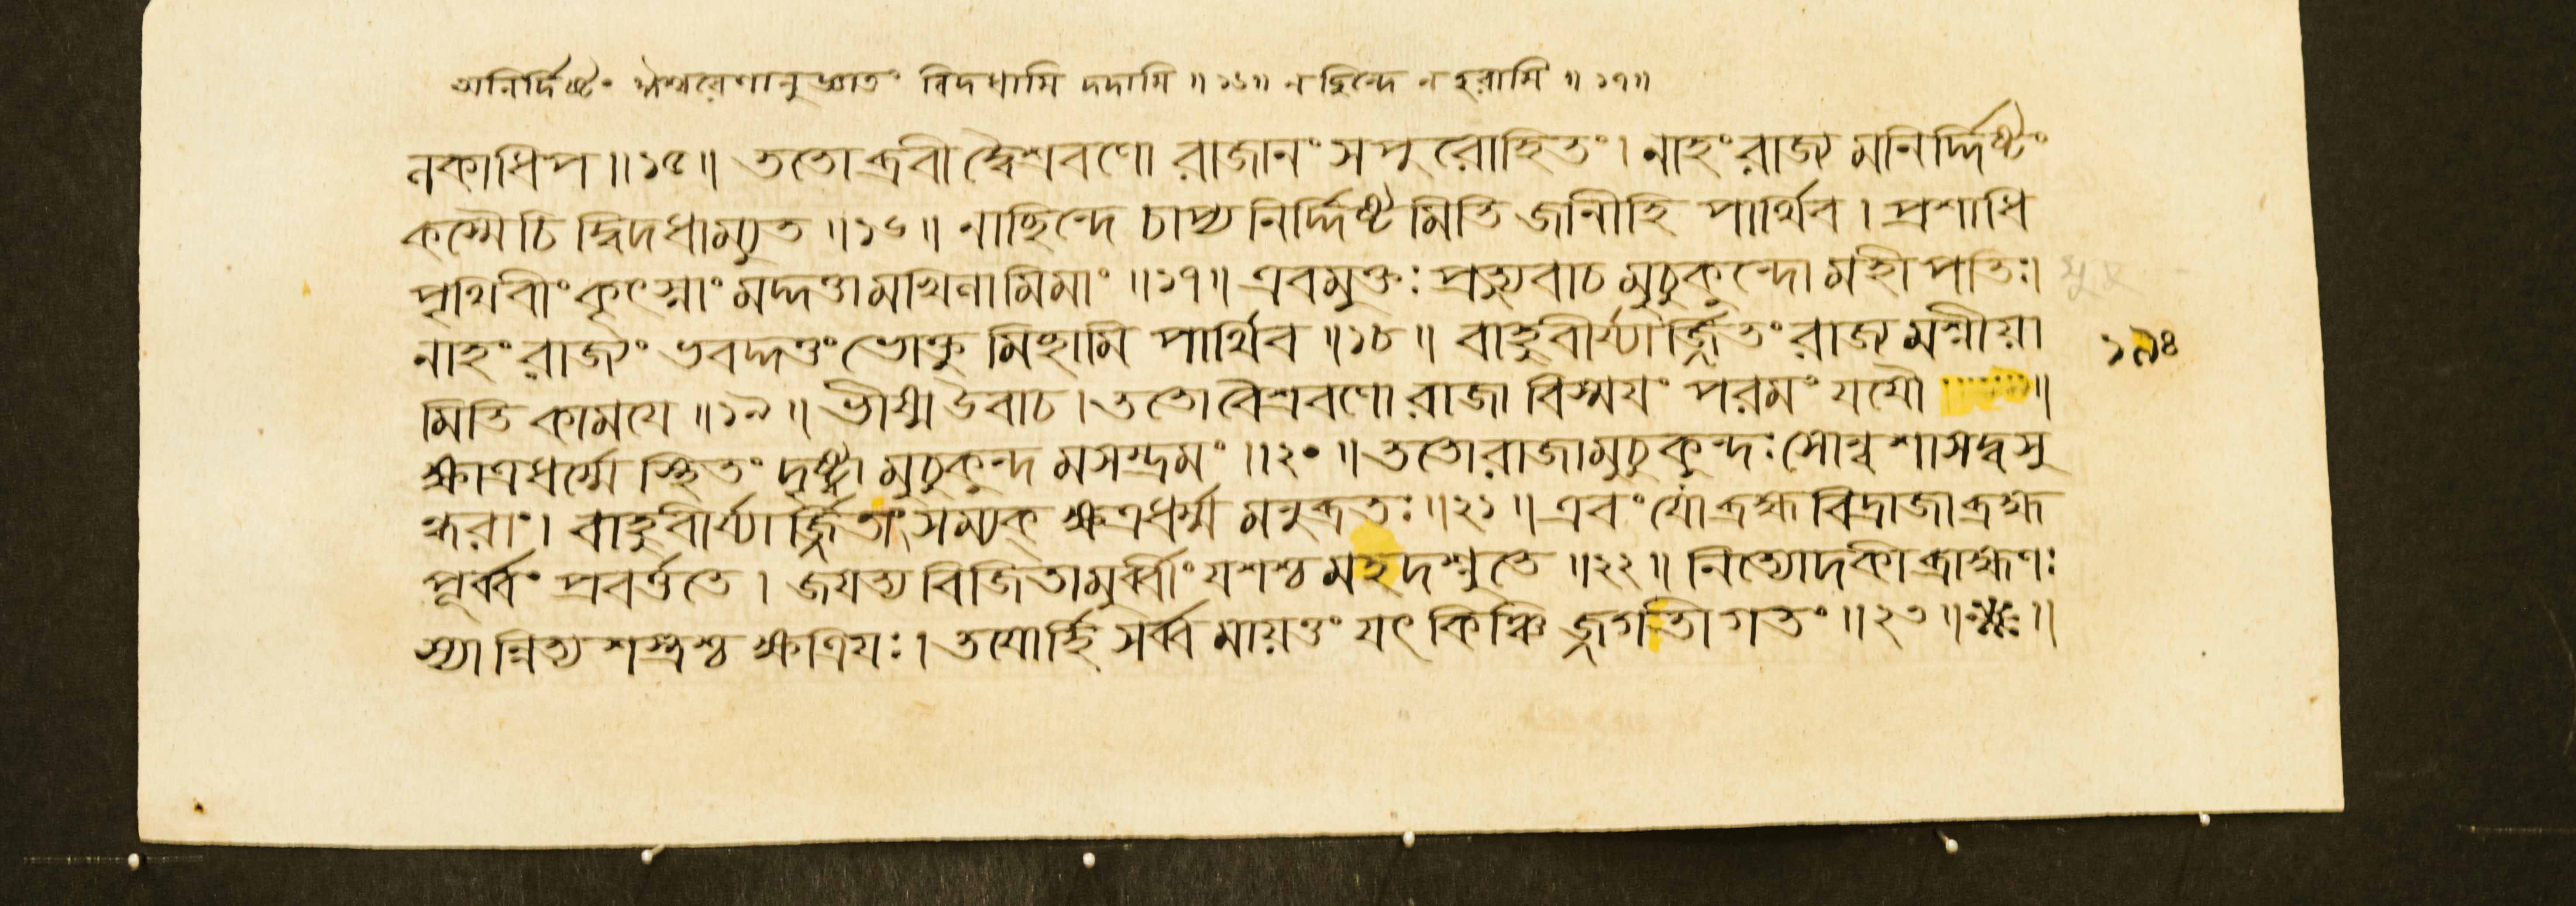 অনির্দিষ্টং ঈশ্বরেণানুজ্ঞাতং বিদধামি দদামি ॥ ১৬॥ নছিন্দে ন হরামি ॥ ১৭॥
নকাধিপ ॥১৫॥ ততোব্রবীদ্বৈশ্রবণো রাজানং সপুরোহিতং। নাহং রাজ্য মনির্দ্দিষ্টং
কস্মৈচিদ্বিদধাম্যুত ॥১৬॥ নাছিন্দে চাপ্য নির্দ্দিষ্ট মিতি জানীহি পার্থিব। প্রশাধি
পৃথিবীং কৃৎস্নাং মদ্দত্তামখিলামিমাং ॥১৭॥ এবমুক্তঃ প্রত্যুবাচ মুচুকুন্দো মহীপতিঃ।
নাহং রাজ্যং ভবদ্দত্তং ভোক্তু মিছামি পার্থিব ॥১৮॥ বাহুবীর্য্যার্জ্জিতং রাজ্য মশ্নীয়া
মিতি কাময়ে ॥১৯॥ ভীষ্ম উবাচ। ততোবৈশ্রবণো রাজা বিস্ময়ং পরমং যযৌ ॥
ক্ষাত্রধর্ম্মে স্থিতং দৃষ্ট্বা মুচুকুন্দ মসম্ভ্রমং ॥২০॥ ততোরাজামুচুকুন্দঃ সোন্বশাসদ্বসু
ন্ধরাং। বাহুবীর্য্যার্জ্জিতাং সম্যক্ ক্ষত্রধর্ম্ম মনুব্রতঃ ॥২১॥ এবং যো ব্রহ্মবিদ্রাজা ব্রহ্ম
পূর্ব্বং প্রবর্ত্ততে। জয়ত্য বিজিতামুর্ব্বীং যশশ্চ মহদশ্নুতে ॥২২॥ নিত্যোদকী ব্রাহ্মণঃ
স্যান্নিত্য শস্ত্রশ্চ ক্ষত্রিয়ঃ। তয়োর্হি সর্ব্ব মায়ত্তং যৎ কিঞ্চিজ্জগতীগতং ॥২৩॥ ॥
১৯৪